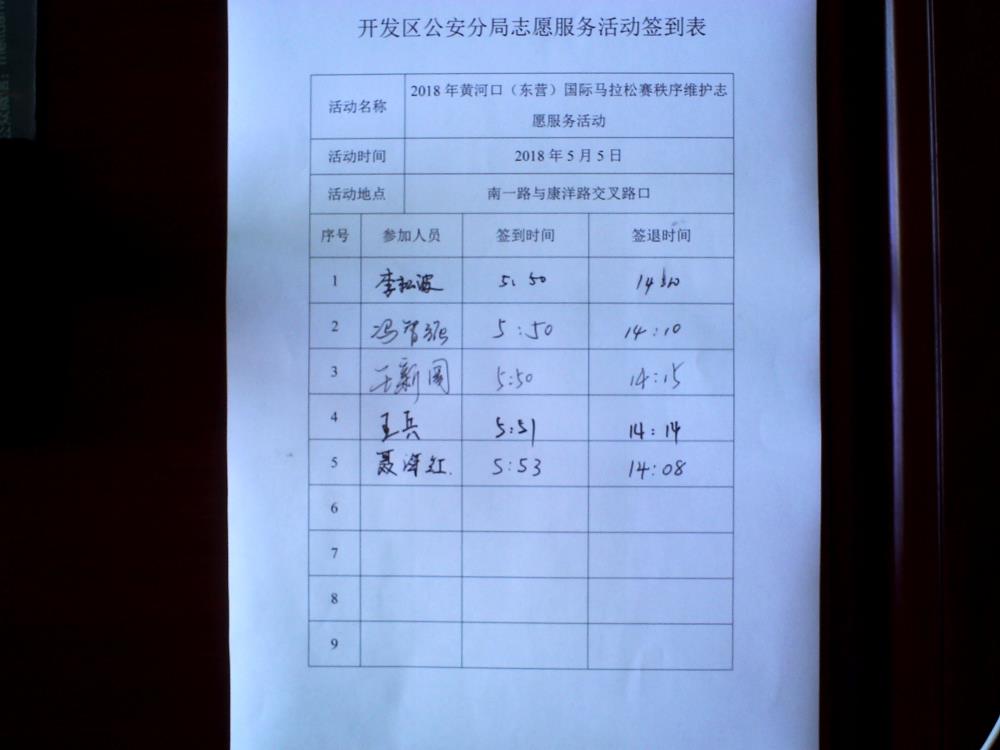 开发区公安分局志愿服务活动签到表
活动名称 2018年黄河口（东营）国际马拉松赛秩序维护志
愿服务活动
活动时间 2018年5月5日
活动地点 南一路与康洋路交叉路口
序号 参加人员 签到时间 签退时间
1 李松波 5:50 14:10
2 冯 5:50 14:10
3 王新国 5:50 14:15
4 王兵 5:51 14:14
5 聂泽红 5:53 14:08
6
7
8
9